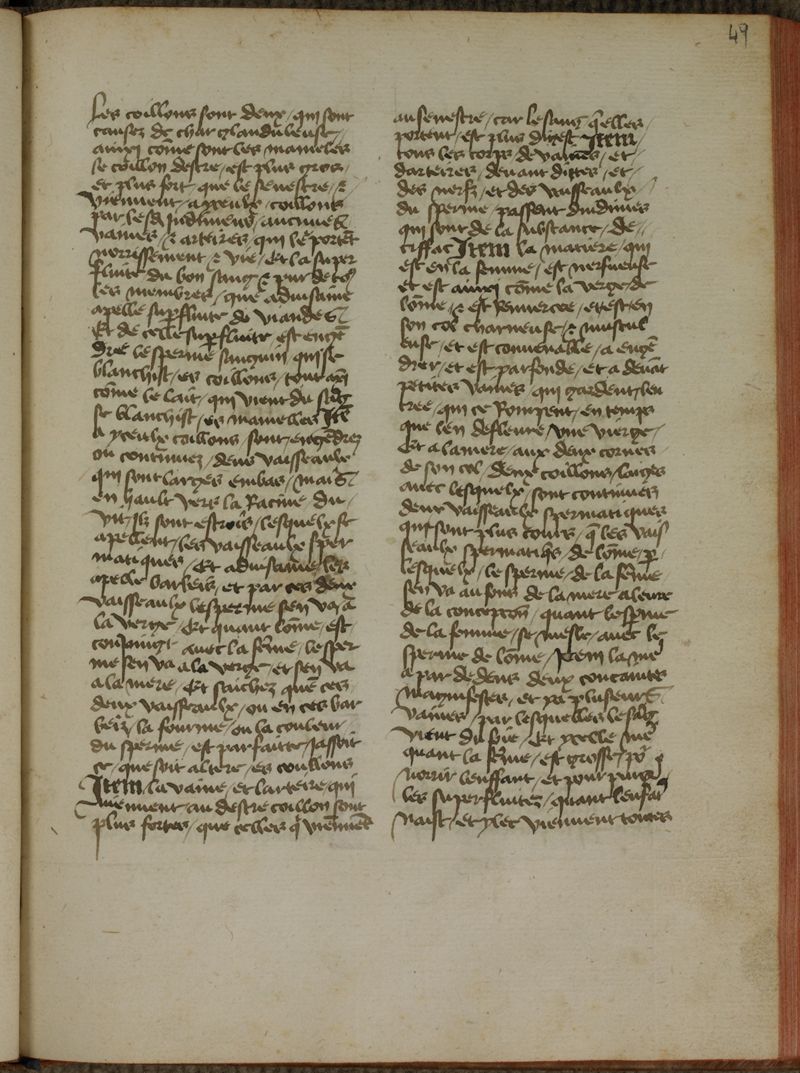 49
Les coillons sont deux / qui sont
causez de char glanduleuse /
aussi cōme sont les mameles
le coillon destre / est plus gros /
et plus fort / que le senestre / ⁊
viennent / a yceulx / coillons
par les
vaines / ⁊ arteires / qui le portēt
norrissement / ⁊ vie / Et la super
fluite / du bon sang / ⁊ pur de to9
les membres / que
apelle supfluite de viandes
Et de celle supfluite / est engē
dree le sperme sanguin / qui se
blanchist / es coillons / tout
cōme le lait / qui vient du sāg
se blanchist / es mamelles Itē
a yceulx coillons / sont / engēdrez
ou continuez / deux vaisseaulx
qui sont larges embas / mais
en hault vers la Racine du /
vit / ilz sont estrois / lesquelx se
apellent / les vaisseaulx sper
matiques / Et
apelle barbeis / et par ces deux
vaisseaulx le sperme sen va / a
la verge / Et quant lōme / est
conioingt auec la fēme / le sper
me sen va a la verge / et sen va
a la mere / Et saichez quē ces
deux vaisseaulx / ou en ces bar
beiz / la fourme / ou la couleur
du sperme / est parfaitte / Jassoit
ce / que soit altere / es coillons
Item / la vaine / et lartere / qui
viennent / au destre coillon sont
plus fortes / que celles q̄ viēnēt
au senestre / car le sang q̄ elles /
portent / est plus digest Item /
tous les corps de vaines / et /
darteires / deuant dittes / et /
des nerfz / et des vaisseaulx /
du sperme / passent dindimes
qui sont de la substance / de /
ciffac Item la matiere / qui
est en la femme / est nerfueuse
et est aussi cōme la verge de
lōme / ⁊ est Renuercee / et est en
son col charneuse / ⁊ muscul
euse / et est conuenable / a engē
drer / et est parfonde / et a deuāt
petites vaines / qui gardent / len
tree / qui se Rompent / en temps
que len defleure / vne vierge /
Et a la mere / aux deux cornes /
de son col / deux coillons / larges
auec lesquelx / sont continues
deux vaisseaulx spermatiques
qui sont plus cours / q̄ les vais
seaulx spermatiqs / de lōme / p̄
lesquelx / le sperme / de la fēme
sen va au fons de la mere a leure
de la concepcōn / quant le spme
de la femme / se mesle / auec le
sperme de lōme / Item la me
a par dedens deux concauites
magnifestes / et ya plusieurs
vaines / par lesquelles le sāg
vient du foie / Et ycelle me
quant la fēme / est grosse / po
norrir lenffant / et pour purgr
les superfluitez / quant lenfāt
naist / et ylec viennent toutes